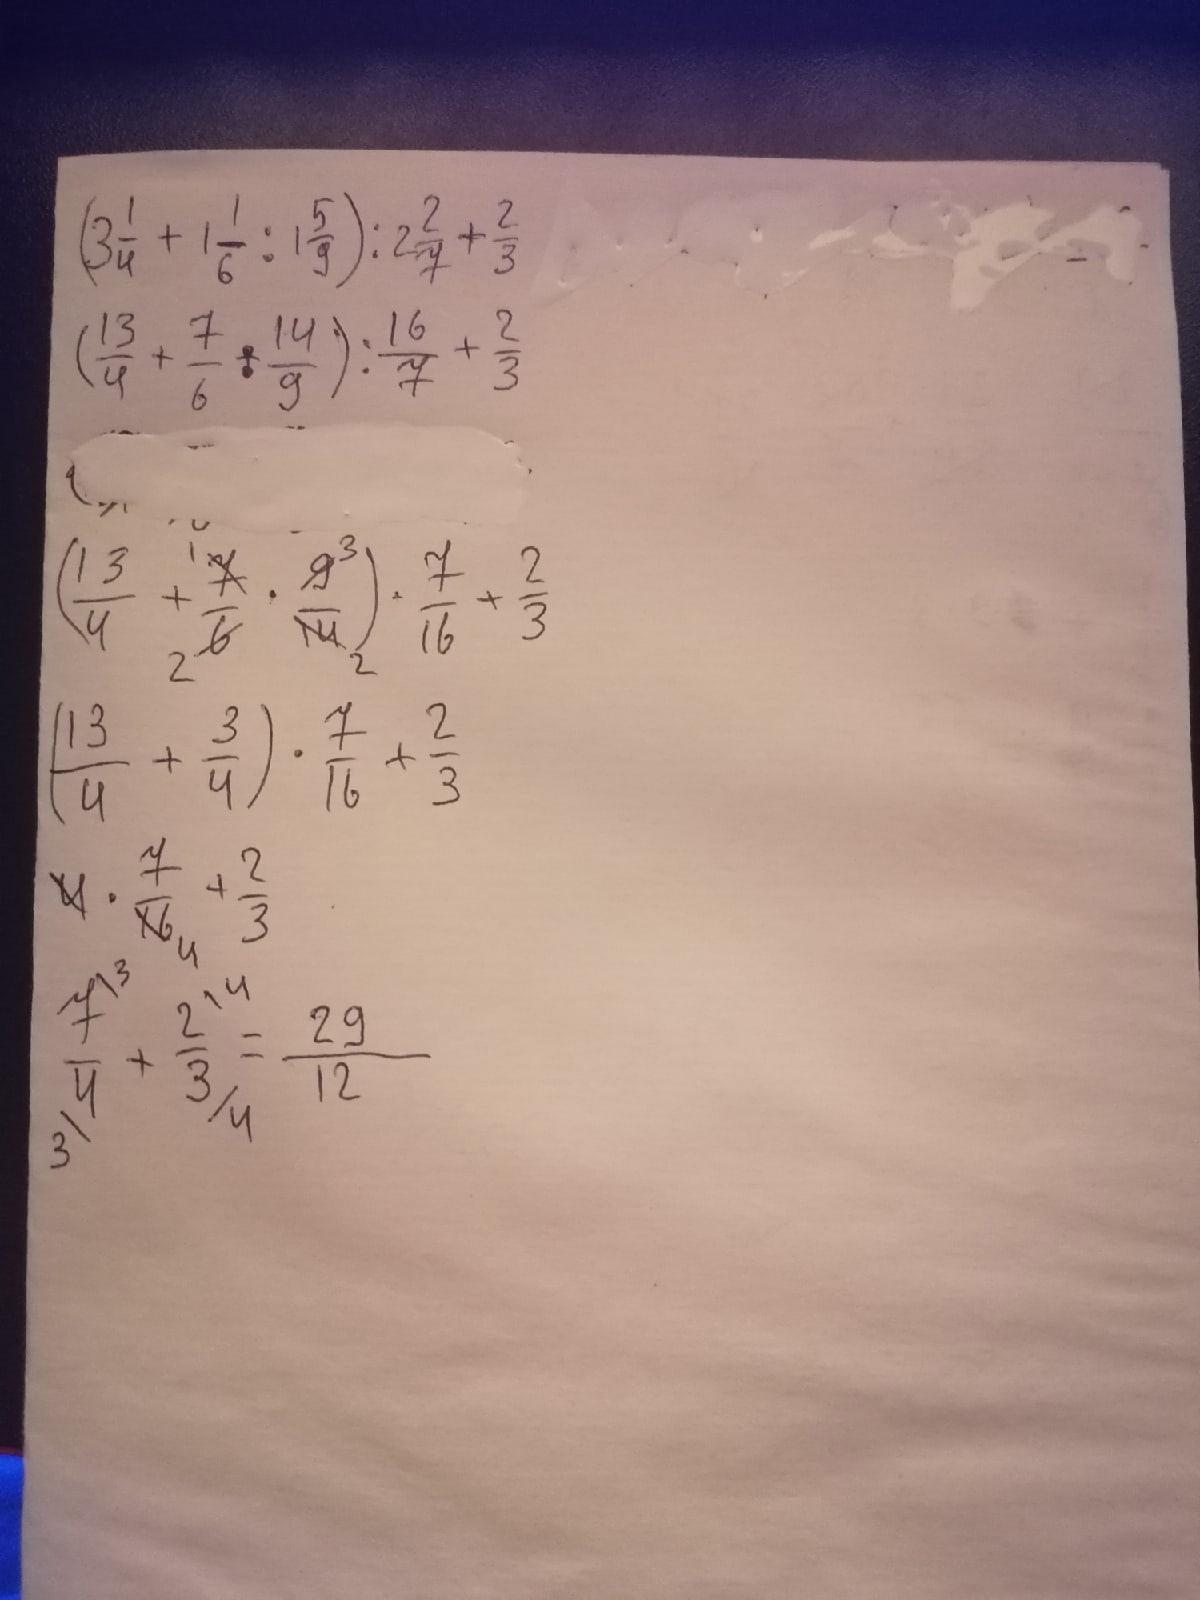 (3 1/4 + 1 1/6 : 1 5/9) : 2 2/7 + 2/3
(13/4 + 7/6 : 14/9) : 16/7 + 2/3
(13/4 + 1 7/6 2 · 9 3/14 2) · 7/16 + 2/3
(13/4 + 3/4) · 7/16 + 2/3
4 · 7/16 4 + 2/3
7\3/4 3/ + 2\4/3 /4 = 29/12